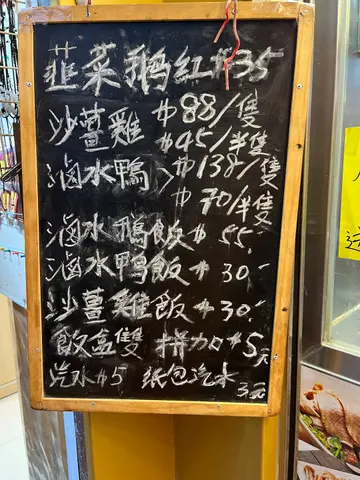 韮菜鵝紅$35
沙薑雞 $88/隻
$45/半隻
滷水鴨 $138/隻
$70/半隻
滷水鵝飯$55.-
滷水鴨飯$30.-
沙薑雞飯$30.-
飯盒雙拼加$5元
汽水$5 纸包汽水3元